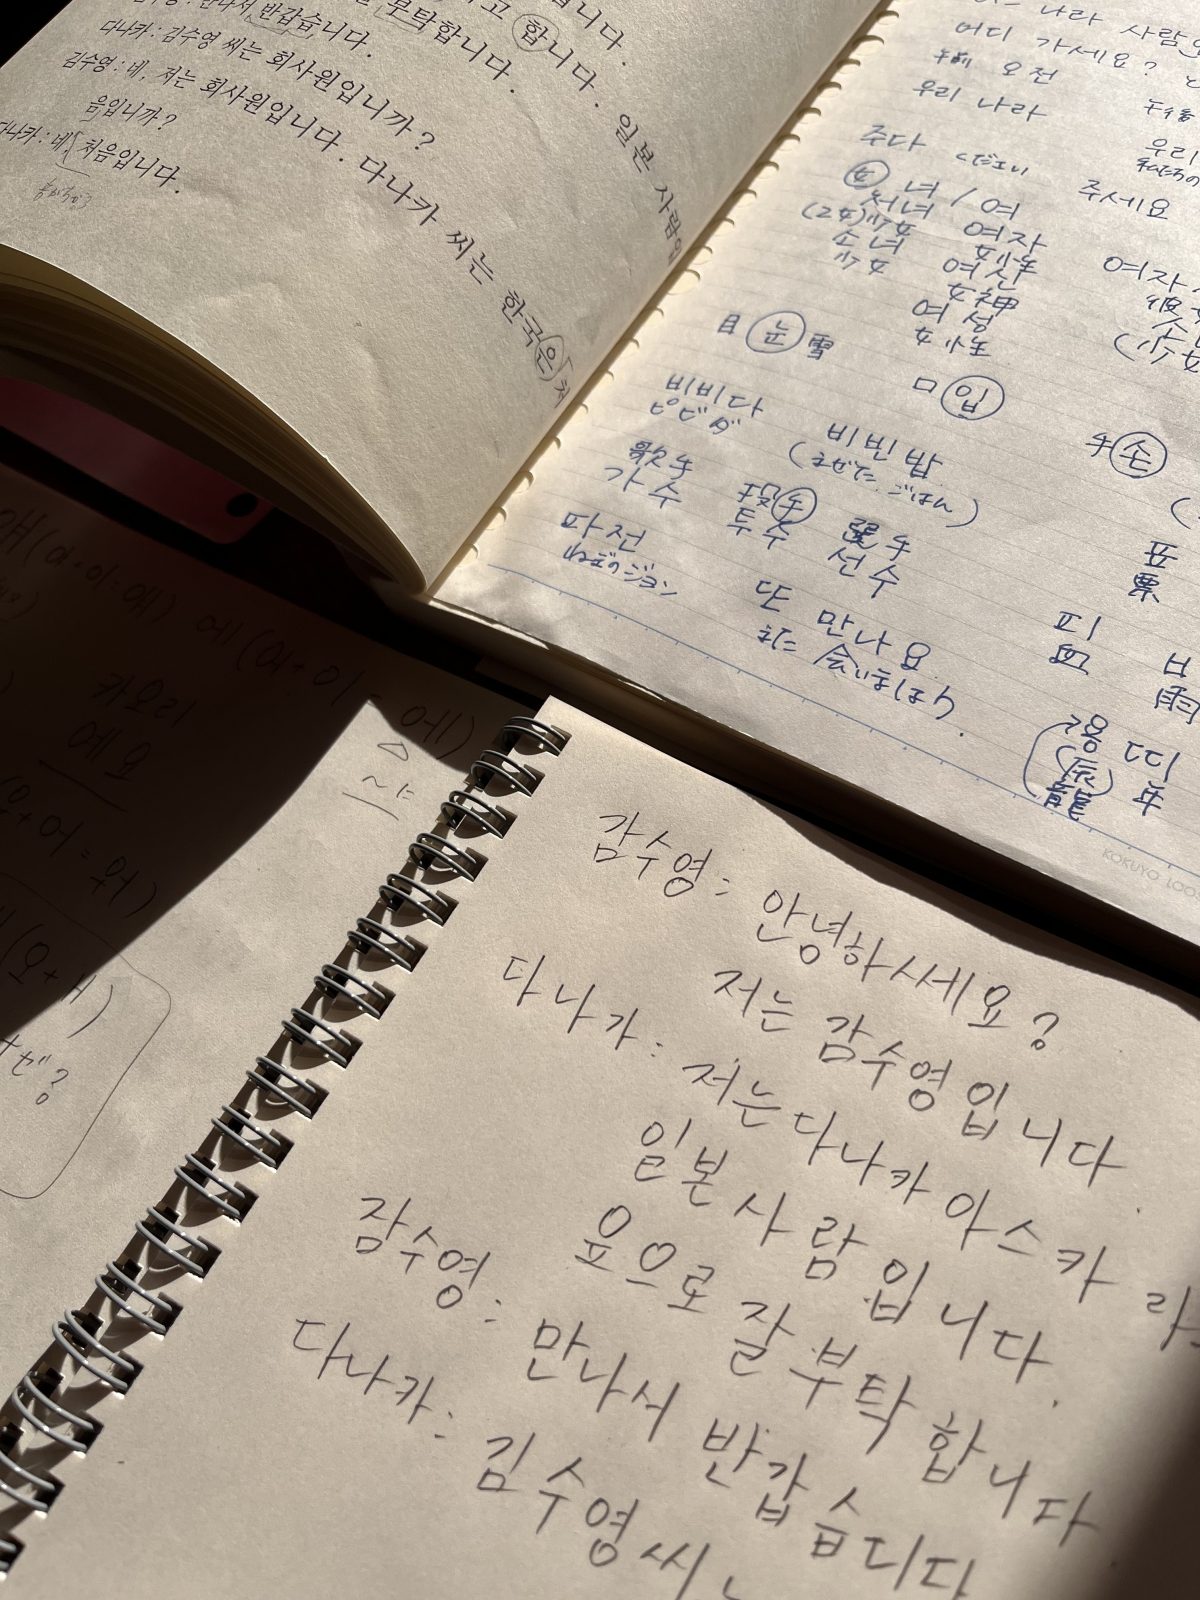 반갑습니다.
부탁합니다.
고 합니다. 일본 사람입
다나카 : 김수영 씨는 회사원입니까?
김수영 : 네, 저는 회사원입니다. 다나카 씨는 한국은 처
음입니까?
다나카 : 네, 처음입니다.
나라 사람
어디 가세요?
午前 오전
우리 나라
午後
우리
주다 ください 주세요
女 녀 / 여
처녀 여자
(2女)少女 女性
소녀 여신
少女 女神
여성
女性
여자
彼女
(少女
目 눈 雪
口 입
手 손
비비다
ビビダ
비빈밥
(まぜた ごはん)
歌手 投手 選手
가수 투수 선수
표
票
파전
ねぎのジョン
또 만나요
また 会いましょう.
피 비
血 雨
용 띠
(辰) 年
龍
KOKUYO LOOS
에 (어+이=에)
카오리
예요
~に
감수영 : 안녕하세요?
저는 감수영입니다
다나가 : 저는 다나카 아스카 라
일본 사람 입니다.
욮으로 잘 부탁 합니다
잠수영 : 만나서 반갑습디다
다나카 : 김수영씨